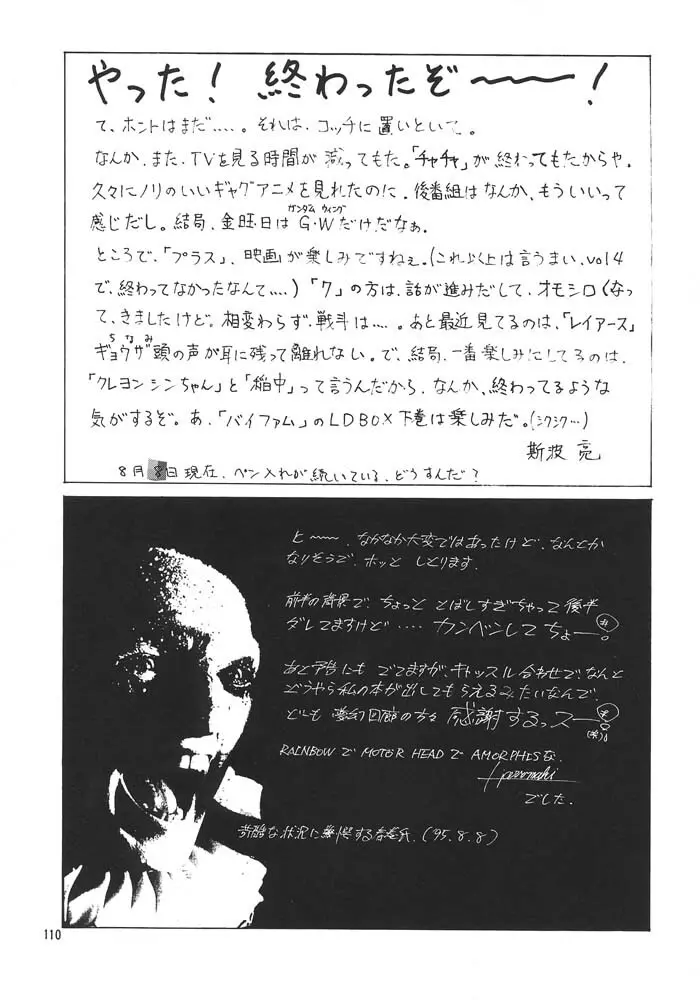 やった！ 終わったぞ〜〜！
て、ホントはまだ‥‥。それは、コッチに置いといて。
なんか、また、TVを見る時間が減ってもた。「チャチャ」が終わってもたからや。
久々にノリのいいギャグアニメを見れたのに、後番組はなんか、もういいって
ガンダム ウィング
感じだし。結局、金旺日はG・Wだけだなぁ。
ところで、「プラス」、映画が楽しみですねぇ。(これ以上は言うまい、vol4
で、終わってなかったなんて‥‥)「ク」の方は、話が進みだして、オモシロくなっ
て、きましたけど。相変わらず、戦斗は‥‥。あと最近見てるのは、「レイアース」
ちなみ
ギョウザ頭の声が耳に残って離れない。で、結局、一番楽しみにしてるのは、
「クレヨンシンちゃん」と「稲中」って言うんだから、なんか、終わってるような
気がするぞ。あ、「バイファム」のLDBOX下巻は楽しみだ。(シクシク…)
斯波 亮
8月8日現在、ペン入れが続いている、どうすんだ？
と〜〜、なかなか大変ではあったけど、なんとか
なりそうで、ホッと しとります。
前半の背景で、ちょっと とばしすぎちゃって後半
ダレてますけど‥‥ カンベンしてちょー
あと予告にも でてますが、キャッスル合わせで、なんと
どうやら私の本が出してもらえるみたいなんで、
どーも 夢幻回廊の方々 感謝するっスー
(笑)
RAINBOWでMOTOR HEADでAMORPHISな
でした.
苛酷な状況に (95.8.8)
110